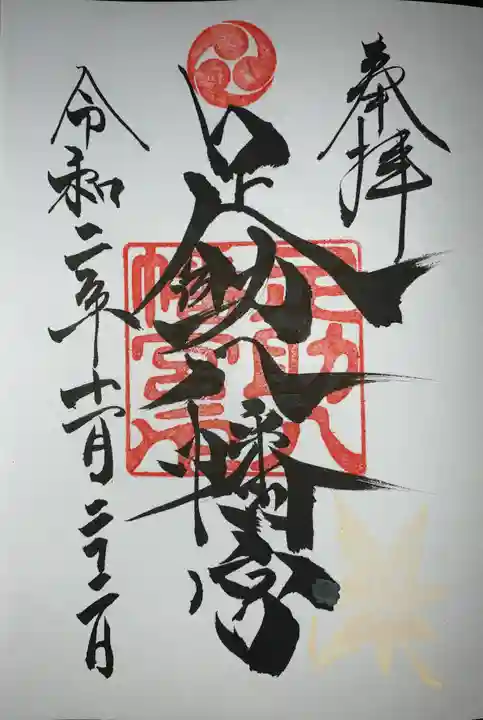 奉拝
足助八幡宮
令和二年十一月二十二日